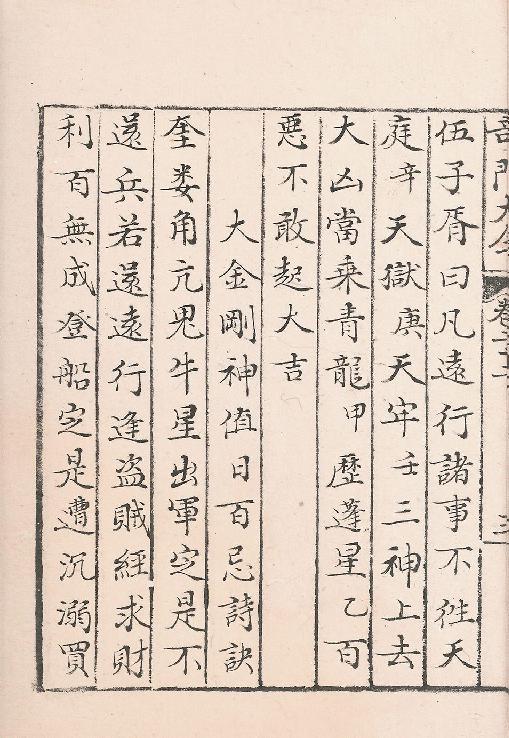 伍子胥曰凡遠行諸事不徃天
庭辛天獄庚天牢壬三神上去
大凶當乗青龍甲歷蓬星乙百
惡不敢起大吉
大金剛神值日百忌詩訣
奎婁角亢鬼牛星出軍定是不
還兵若還遠行逢盗賊經求財
利百無成登船定是遭沉溺買